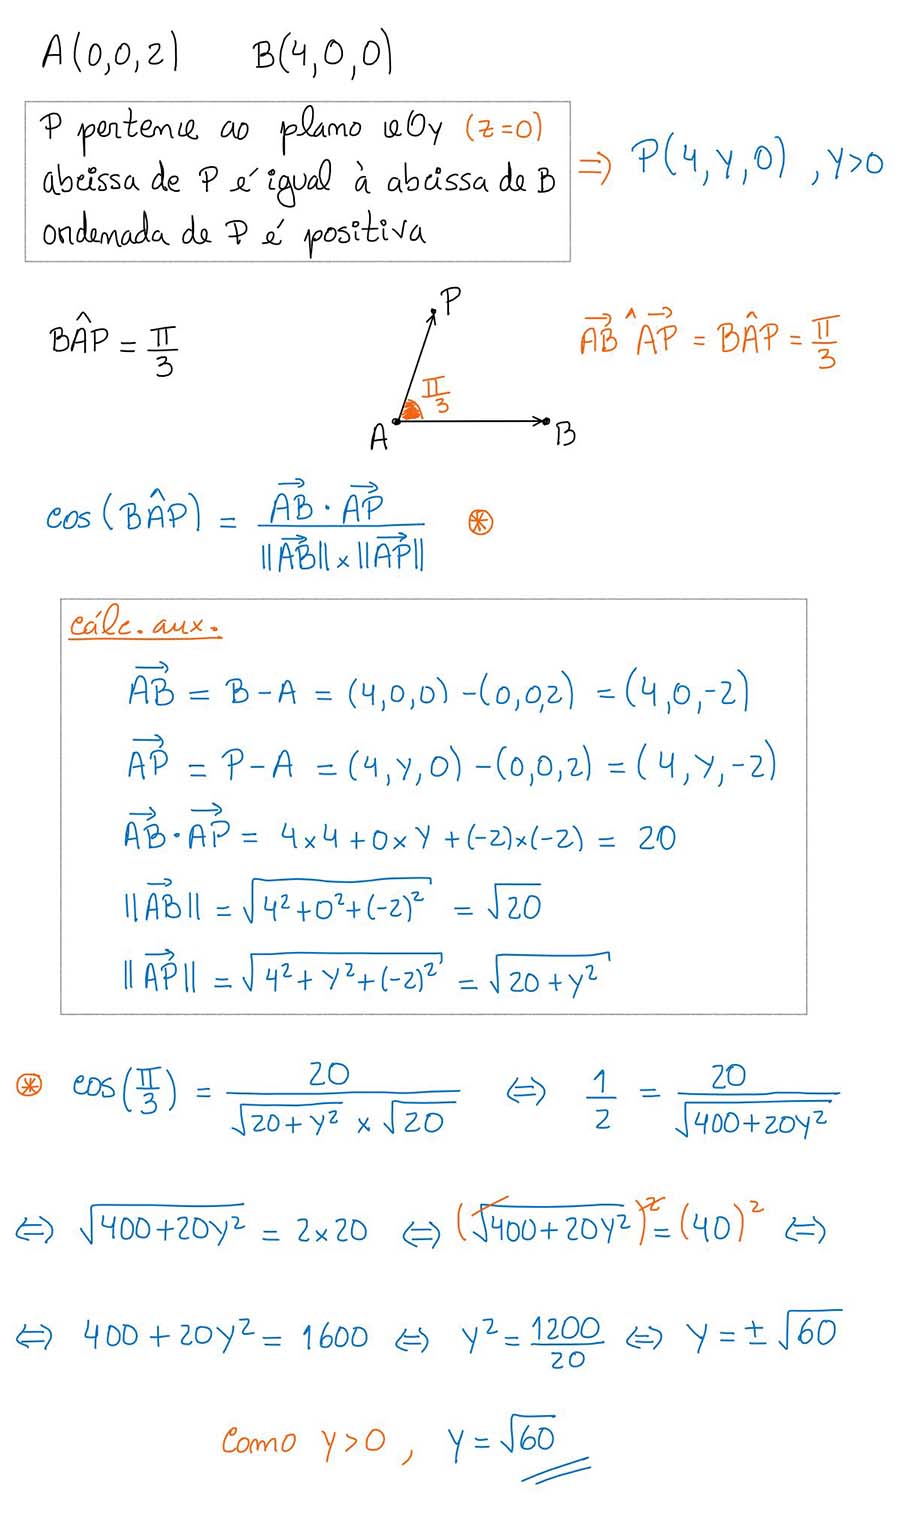 A(0,0,2) B(4,0,0)
P pertence ao plano xOy (z=0)
abcissa de P é igual à abcissa de B
ordenada de P é positiva
⇒ P(4,y,0) , y>0
BÂP = π/3
P
π/3
A
B
AB⃗ ^ AP⃗ = BÂP = π/3
cos(BÂP) = (AB⃗ · AP⃗)/(||AB⃗|| × ||AP⃗||) ⊛
cálc. aux.
AB⃗ = B-A = (4,0,0) - (0,0,2) = (4,0,-2)
AP⃗ = P-A = (4,y,0) - (0,0,2) = (4,y,-2)
AB⃗ · AP⃗ = 4×4 + 0×y + (-2)×(-2) = 20
||AB⃗|| = √(4²+0²+(-2)²) = √20
||AP⃗|| = √(4²+y²+(-2)²) = √(20+y²)
⊛ cos(π/3) = 20/(√(20+y²) × √20) ⇔ 1/2 = 20/√(400+20y²)
⇔ √(400+20y²) = 2×20 ⇔ (√(400+20y²))² = (40)² ⇔
⇔ 400 + 20y² = 1600 ⇔ y² = 1200/20 ⇔ y = ± √60
Como y>0 , y = √60